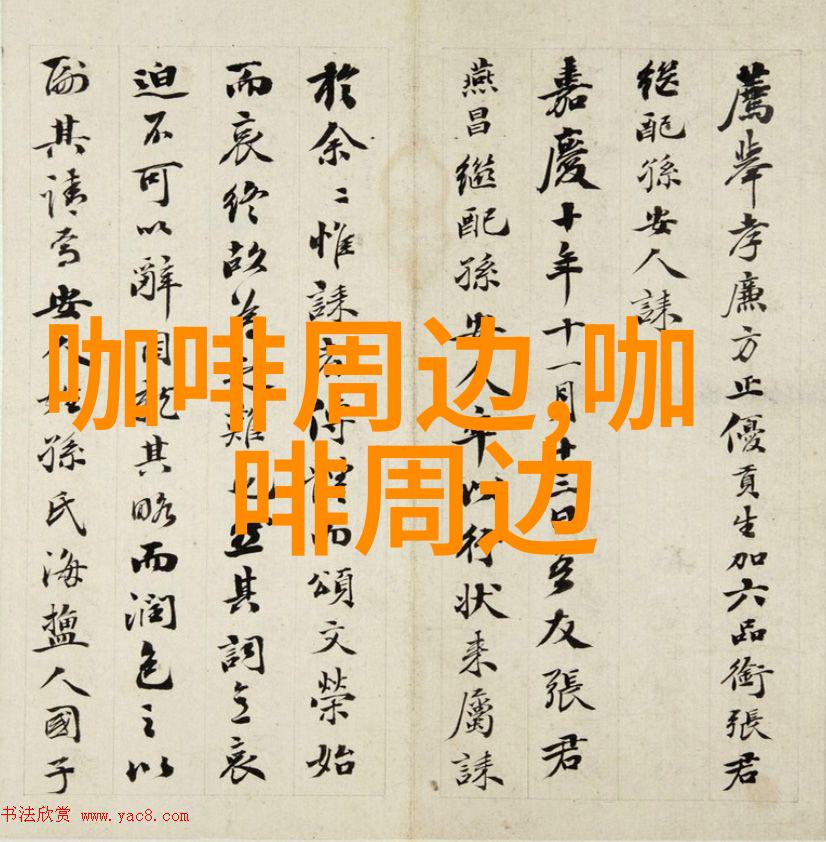 薦舉孝廉方正優貢生加六品銜張君
继配孫安人誄
嘉慶十年十一月十三日吾友張君
燕昌繼配孫安人卒以行状来屬誄
於余〻惟誄者傳體而頌文榮始
而哀終故為之難也 其詞 哀
迫不可以辭因 其略而潤色之以
副其請焉安人姓孫氏海鹽人國子
咖啡周边,咖
啡周边
书法欣赏 www.yac8.com